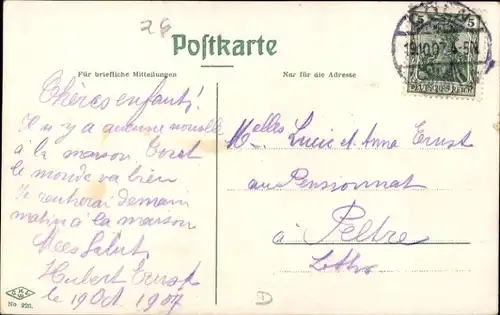 28
Postkarte
Für briefliche Mitteilungen
Nur für die Adresse
5 5
19.10.07. 4-5N
DEUTSCHES REICH
Chères enfants!
Il n y a aucune nouvelle
à la maison Tout
le monde va bien
Je rentrerai demain
matin à la maison
Mes Salut
Hubert Ernst
le 19 Oct 1907
Melles Lucie et Anna Ernst
au Pensionnat
à Peltre
Lothr
D
No. 220.